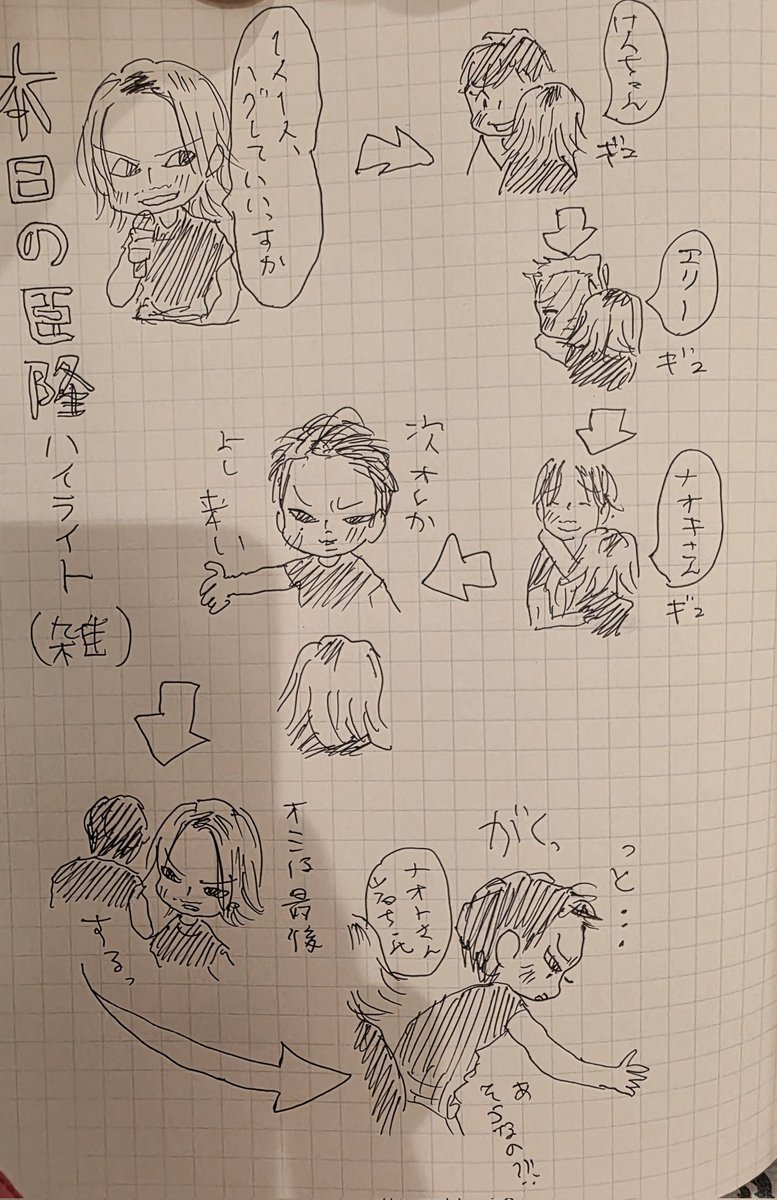 本日の臣隆ハイライト(雑)
1人1人、
ハグしていいっすか
けんちゃん
ギュ
エリー
ギュ
ナオキさん
ギュ
次オレか
よし来い
オミは最後
するっ
がくっ
っと…
ナオトさん
あ
そうなの?!!